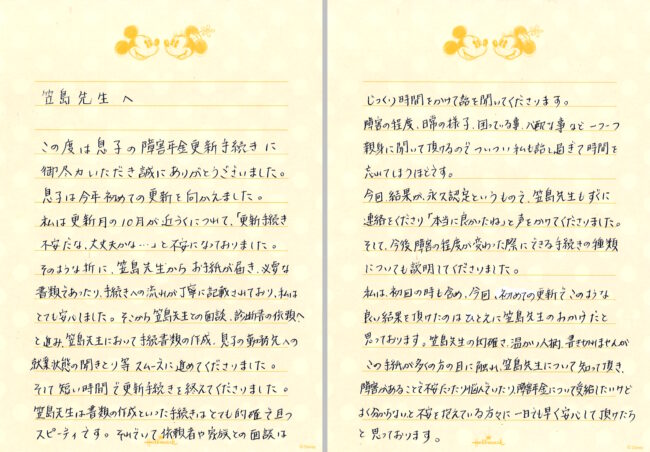 笠島先生へ
この度は息子の障害年金更新手続きに
御尽力いただき誠にありがとうございました。
息子は今年初めての更新を向かえました。
私は更新月の10月が近づくにつれて、「更新手続き
不安だな、大丈夫かな…」と不安になっておりました。
そのような折に、笠島先生からお手紙が届き、必要な
書類であったり、手続きへの流れが丁寧に記載されており、私は
とても安心しました。そこから笠島先生との面談、診断書の依頼へ
と進み、笠島先生において手続書類の作成、息子の勤務先への
就業状態の聞きとり等スムースに進めてくださりました。
そして短い時間で更新手続きを終えてくださりました。
笠島先生は書類の作成といった手続きはとても的確で且つ
スピーティです。それでいて依頼者や家族との面談は
Hallmark
© Disney
じっくり時間をかけて話を聞いてくださります。
障害の程度、日常の様子、困っている事、心配な事など一つ一つ
親身に聞いて頂けるのでついつい私も話し過ぎて時間を
忘れてしまうほどです。
今回、結果が、永久認定というもので、笠島先生もすぐに
連絡をくださり「本当に良かったね」と声をかけてくださりました。
そして、今後障害の程度が変わった際にできる手続きの種類
についても説明してくださりました。
私は、初回の時も含め、今回、初めての更新でこのような
良い結果を頂けたのはひとえに笠島先生のおかげだと
思っております。笠島先生の的確さ、温かい人柄、書き切れませんが
この手紙が多くの方の目に触れ、笠島先生について知って頂き、
障害があることで不安だったり悩んでいたり、障害年金について受給したいけど
よく分からないと不安を抱えている方々に一日でも早く安心して頂けたら
と思っております。
Hallmark
© Disney